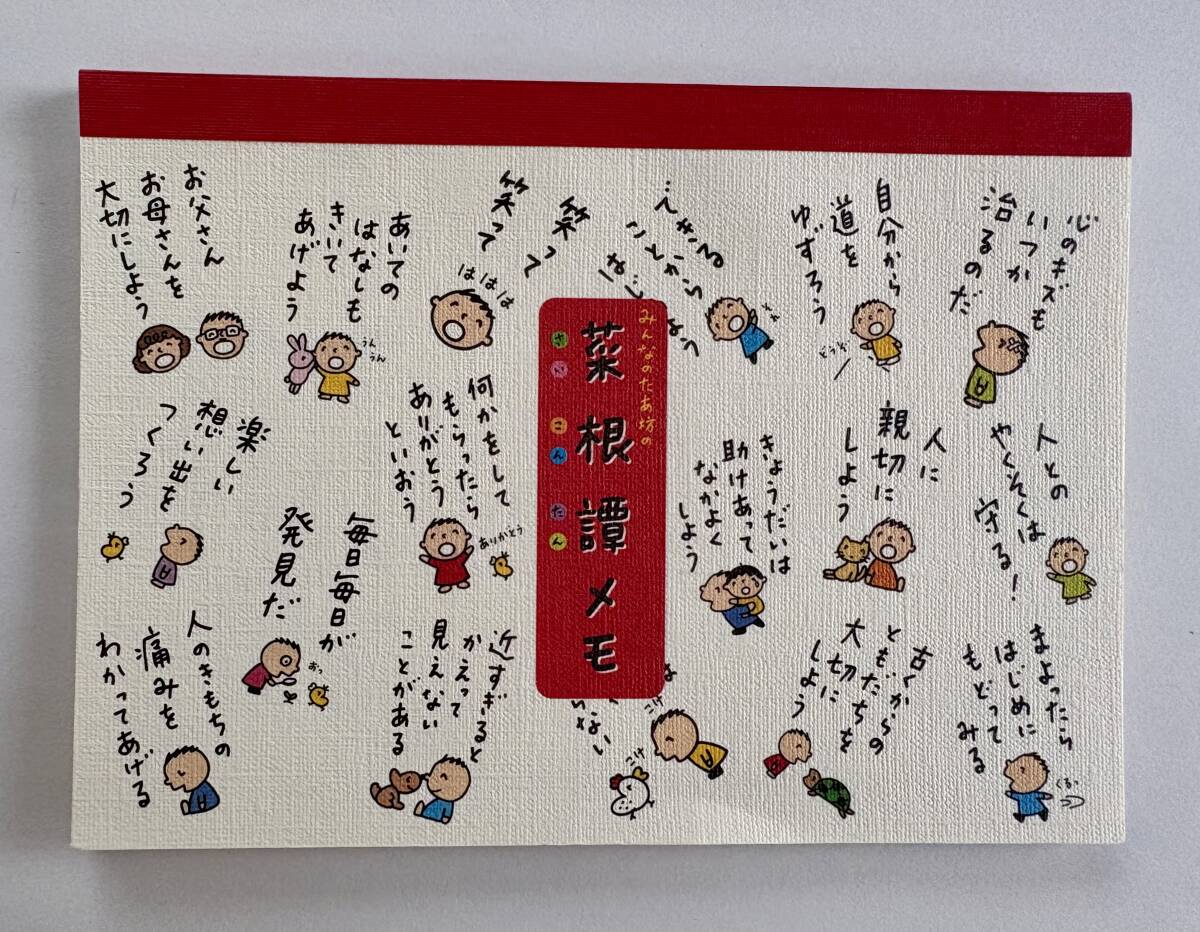 心のキズも
いつか
治るのだ
自分から
道を
ゆずろう
どうぞ
できる
ことから
笑って
笑って
ははは
あいての
はなしも
きいて
あげよう
うん
うん
お父さん
お母さんを
大切にしよう
みんなのたあ坊の
菜根譚メモ
さいこんたん
人との
やくそくは
守る!
人に
親切に
しよう
きょうだいは
助けあって
なかよく
しよう
何かをして
もらったら
ありがとう
といおう
ありがとう
楽しい
想い出を
つくろう
毎日毎日が
発見だ
おっ
まよったら
はじめに
もどって
みる
くるっ
古くからの
ともだちを
大切に
しよう
こけ
こけ
近すぎると
かえって
見えない
ことがある
人のきもちの
痛みを
わかってあげる